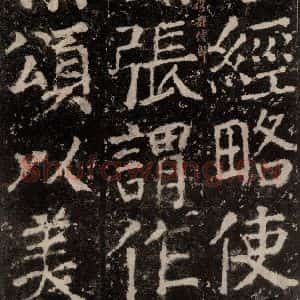 經略使
張謂作
頌以美